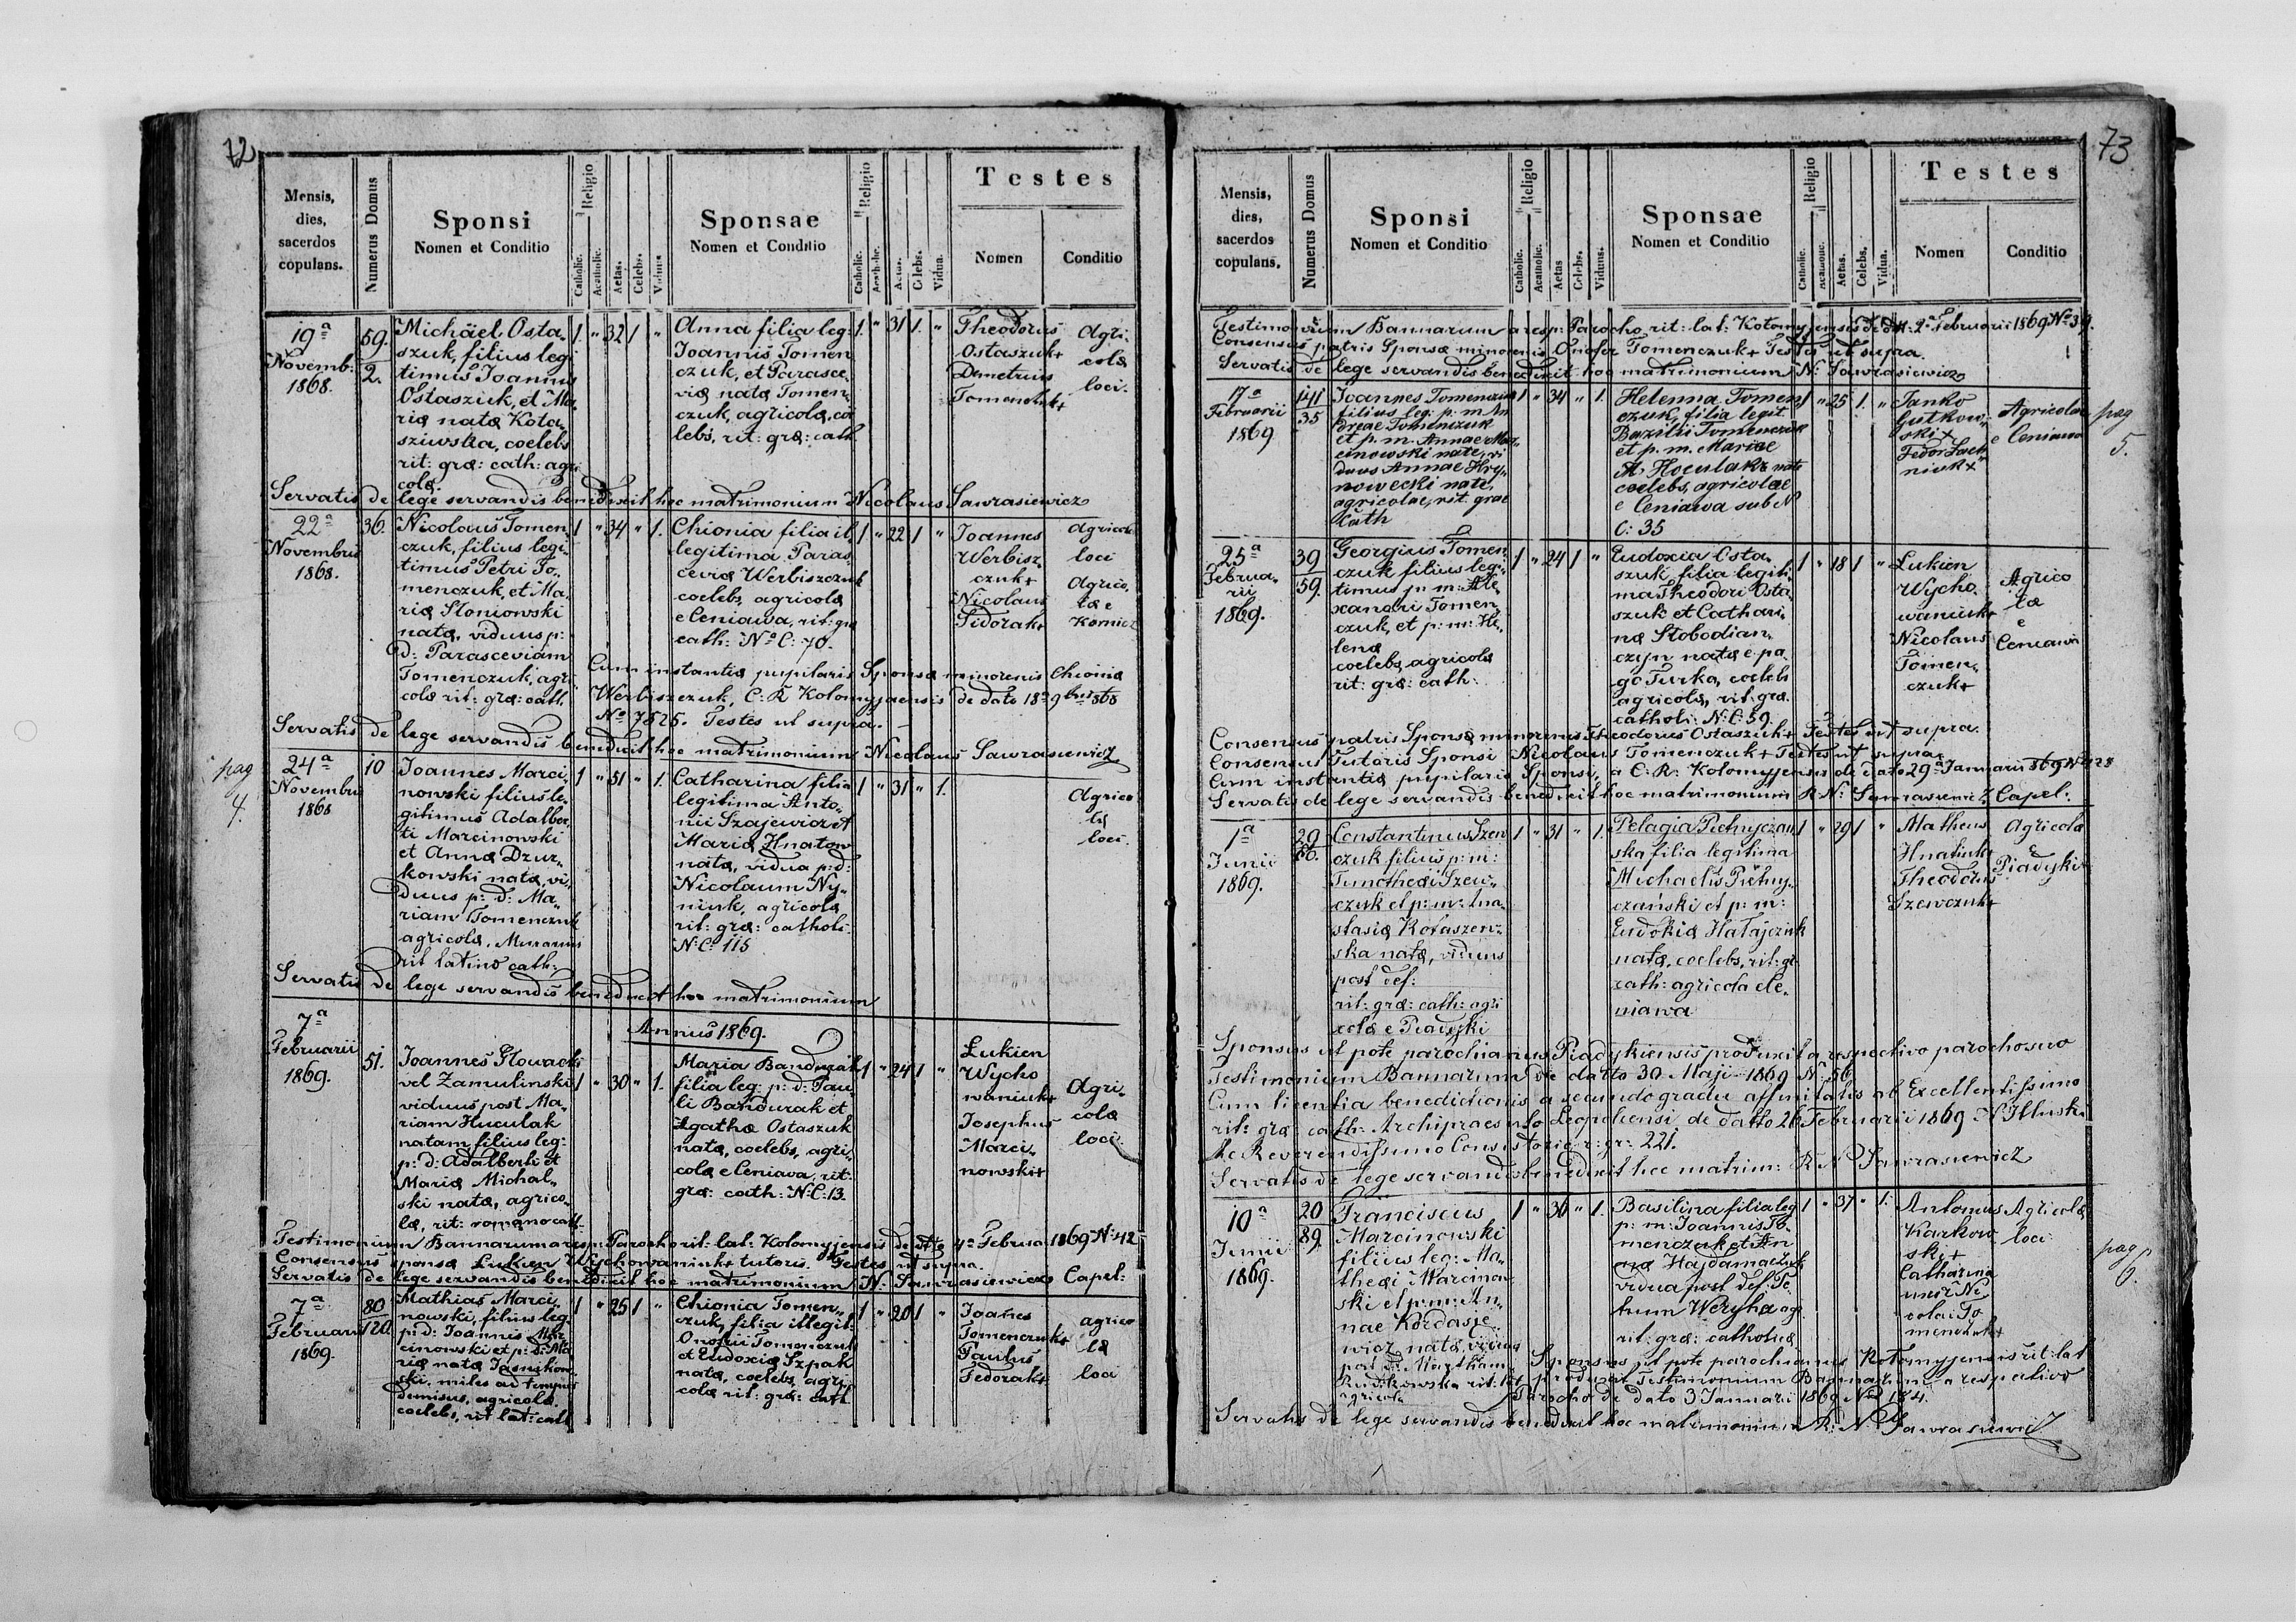 72
Mensis,
dies,
sacerdos
copulans.
Numerus Domus
Sponsi
Nomen et Conditio
Religio
Catholic.
Acatholic.
Aetas.
Celebs.
Viduus
Sponsae
Nomen et Conditio
Religio
Catholic.
Aetas.
Celebs.
Vidua.
Testes
Nomen
Conditio
19a
Novemb:
1868.
59.
2.
Michäel Osta„
szuk, filius legi
timus Joannis
Ostaszuk, et Ma„
riæ natæ Kota„
sziwska, coelebs
rit: græ: cath: agri
colæ.
1. „ 32 1 „
Anna filia leg:
Joannis Tomen
czuk, et Parasce„
viæ natæ Tomen„
czuk, agricolæ, coe
lebs, rit: græ: cath
1. „ 31 1. „
Theodorus
Ostaszuk+
Demetrius
Tomenczuk+
Agri„
colæ
loci.
Servatis de lege servandis benedixit hoc matrimonium Nicolaus Sawrasiewicz
22a
Novembris
1868.
36.
Nicolaus Tomen„
czuk, filius legi„
timus Petri To„
menczuk, et Ma„
riæ Sloniowski
natæ, viduus p:
d: Parasceviam
Tomenczuk, agri
colæ rit: græ: cath.
1 „ 34 „ 1.
Chionia filia il
legitima Paras„
ceviæ Werbiszczuk
coelebs, agricolæ
e Ceniawa, rit: græ
cath: No C: 70.
1 „ 22 1 „
Joannes
Werbisz„
czuk+
Nicolaus
Sidorak+
Agricolæ
loci
Agrico„
læ e
Kornicz
Cum instantiæ pupilaris Sponsæ minorenis Chioniæ
Werbiszczuk, C: R Kolomyjaensis de dato 18a 9bris 1868
No 7525. Testes ut supra.
Servatis de lege servandis benedixit hoc matrimonium Nicolaus Sawrasiewicz
pag
4.
24a
Novembris
1868
10
Joannes Marci„
nowski filius le„
gitimus Adalber„
ti Marcinowski
et Annæ Dzur„
kowski natæ, vi„
duus p: d: Ma„
riam Tomenczuk
agricolæ, Murarius
rit latino cath:
1 „ 51 „ 1.
Catharina filia
legitima Anto„
nii Szajewicz et
Mariæ Hnatow
natæ, vidua p: d:
Nicolaum Ny„
niuk, agricolæ
rit: græ: catholi:
N: C: 115
1 „ 31 „ 1.
Agrico
læ
loci.
Servatis de lege servandis benedixit hoc matrimonium
Annus 1869.
7a
Februarii
1869.
51.
Joannes Glowacki
vel Zamulinski
viduus post Ma„
riam Huculak
natam, filius leg:
p: d: Adalberti et
Mariæ Michal„
ski natæ, agrico„
læ, rit: romano cath.
1 „ 30 „ 1.
Maria Bandurak
filia leg: p: d: Pau„
li Bandurak et
Agathæ Ostaszuk
natæ, coelebs, agri„
colæ e Ceniawa, rit:
græ: cath: N: C: 13.
1 „ 24 1 „
Lukien
Wycho
waniuk+
Josephus
Marci„
nowski+
Agri„
colæ
loci.
Testimonium Bannarum a resp: Parocho rit: lat: Kolomyjensis de dtto 4a Februar 1869 No: 42
Consensus sponsæ Lukien Wychowaniuk+ tutoris. Testes ut supra
Servatis de lege servandis benedixit hoc matrimonium N: Sawrasiewicz Capel:
7a
Februarii
1869.
80
120.
Mathias Marci„
nowski, filius leg:
p: d: Joannis Mar„
cinowski et p: d: Ma
riæ natæ Jasnikow„
ski, miles ad tempus
dimisus, agricolæ,
coelebs, rit lat: cath
1 „ 25 1 „
Chionia Tomen„
czuk, filia illegit:
Onofrii Tomenczuk
et Eudoxiæ Szpak
natæ, coelebs, agri„
colæ rit: græ: cath.
1 „ 20 1 „
Joanes
Tomenczuk+
Paulus
Fedorak+
agrico
læ
loci
73
Mensis,
dies,
sacerdos
copulans.
Numerus Domus
Sponsi
Nomen et Conditio
Religio
Catholic.
Acatholic.
Aetas
Celebs.
Viduus.
Sponsae
Nomen et Conditio
Religio
Catholic.
Acatholic.
Aetas.
Celebs.
Vidua.
Testes
Nomen
Conditio
Testimonium Bannarum a resp: Parocho rit: lat: Kolomyjensis de dtt. 2a Februarii 1869 No 39.
Consensus patris Sponsæ minorenis Onofer Tomenczuk+ Testes ut supra.
Servatis de lege servandis benedixit hoc matrimonium N: Sawrasiewicz
17a
Februarii
1869
141
35
Joannes Tomenczuk
filius leg: p: m An
dreae Tomenczuk
et p. m. Annae Mar„
cinowski nate, vi
duus Annae Hry„
nowecki nate,
agricolae, rit. grae
Cath
1 „ 34 „ 1.
Helenna Tomen
czuk, filia legit.
Bazilii Tomenczuk
et p. m. Mariae
Huculak nate
coelebs, agricolae
e Ceniawa sub N
C: 35
1 „ 25 1. „
Janko
Gutkow„
ski+
Fedor Lach„
niuk+
Agricolae
e Ceniawa
pag
5.
25a
Februa„
rii
1869.
39
59.
Georgius Tomen„
czuk filius legi„
timus p: m: Ale„
xandri Tomen„
czuk, et p: m: He„
lenæ
coelebs, agricolæ
rit: græ: cath:
1 „ 24 1 „
Eudoxia Osta„
szuk, filia legiti„
ma Theodori Osta„
szuk et Cathari„
næ Slobodian„
czyn natæ e pa„
go Turka, coelebs
agricolæ, rit: græ.
catholi: N: C: 59.
1 „ 18 1 „
Lukien
Wycho„
waniuk+
Nicolaus
Tomen„
czuk+
Agrico
læ
e
Ceniawa
Consensus patris Sponsæ minorenis Theodorus Ostaszuk+ Testes ut supra.
Consensus Tutoris Sponsi Nicolaus Tomenczuk+ Testes ut supra
Cum instantiæ pupilaris Sponsi, a C: R: Kolomyjensis de dato 29a Januarii 869 No 428
Servatis de lege servandis benedixit hoc matrimonium R N: Sawrasiewicz Capel:
1a
Junii
1869.
29
60.
Constantinus Szew
czuk filius p: m:
Timothei Szew„
czuk et p: m: Ana„
stasiæ Kotaszew„
ska natæ, viduus
post def:
rit: græ: cath: agri
colæ e Piadyki
1 „ 31 „ 1.
Pelagia Pietnyczan
ska filia legitima
Michaelis Pietny„
czański et p: m:
Eudokiæ Hałajczuk
natæ, coelebs, rit: gr.
cath: agricola e Ce„
niawa
1 „ 29 1 „
Matheus
Hnatiuk+
Theodorus
Szewczuk+
Agricolæ
e
Piadyki
Sponsus ut pote parochianus Piadykiensis produxit a respectivo parocho suo
Testimonium Bannarum de datto 30 Maji 1869 N: 56
Cum licentia benedictionis a secundo gradu affinitatis ab Excellentissimo
rit: græ: cath: Archipraesulo Leopoliensi de datto 26 Februarii 1869 N
ac Reverendissimo Consistorio r: gr: 221.
Servatis de lege servandis benedixit hoc matrim: R. N Sawrasiewicz
10a
Junii
1869.
20
89.
Franciscus
Marcinowski
filius leg: Ma„
thei Marcinow
ski et p: m: An„
nae Kordasie„
wicz natæ, viduus
post d: Martham
Rudkowska rit: lat
agricola
1 „ 36 „ 1.
Basilina filia leg
p: m: Joannis To„
menczuk et An
næ Hajdamaczuk
vidua post def: Pe
trum Weryha agr.
rit: græ: catholicæ
1 „ 37 „ 1.
Antonius
Karkow
ski+
Catharina
uxor Ni
colai To
menczuk+
Agricolæ
loci
pag
6.
Sponsus ut pote parochianus Kolomyjensis rit: lat
produxit Testimonium Bannarum a respectivo
Parocho de dato 3 Januarii 1869 No 184.
Servatis de lege servandis benedixit hoc matrimonium R: N: Sawrasiewicz